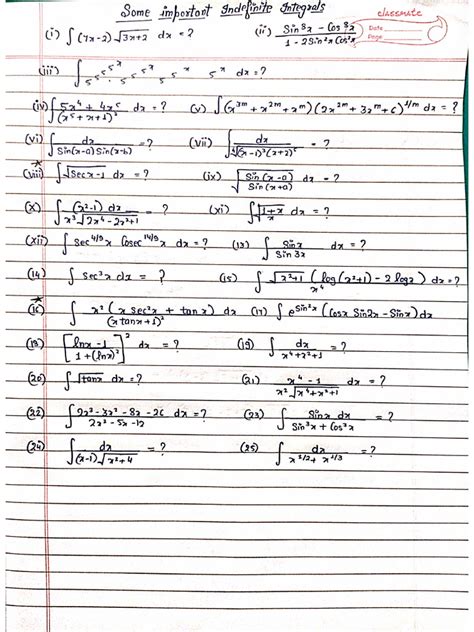 Some important Indefinite Integrals
classmate
Date
Page
(i) ∫ (7x-2) √(3x+2) dx = ? (ii) (Sin⁸x - Cos⁸x)/(1 - 2Sin²x Cos²x)
(iii) ∫ 5^5^5^x . 5^5^x 5^x dx = ?
(iv) ∫ (5x⁴ + 4x⁵)/(x⁵ + x + 1)² dx = ? (v) ∫ (x^3m + x^2m + x^m) (2x^2m + 3x^m + 6)^1/m dx = ?
(vi) ∫ dx/(Sin(x-a) Sin(x-b)) = ? (vii) ∫ dx/∜((x-1)³(x+2)⁵) = ?
*(viii) ∫ √(Sec x - 1) dx = ? (ix) √(Sin(x-a)/Sin(x+a)) dx = ?
(x) ∫ (x²-1) dx/(x³ √(2x⁴ - 2x²+1)) = ? (xi) ∫ √((1+x)/x) dx = ?
(xii) ∫ Sec^4/9 x Cosec^14/9 x dx = ? (13) ∫ Sin x/Sin 3x dx = ?
(14) ∫ Sec³x dx = ? (15) ∫ √(x²+1) (log(x²+1) - 2 log x)/x⁴ dx = ?
*(16) ∫ x² (x Sec²x + tan x)/(x tan x + 1)² dx (17) ∫ e^Sin²x (Cos x Sin2x - Sin x) dx
[(ln x - 1)/(1 + (ln x)²)]² dx = ? (19) ∫ dx/(x⁴+x²+1) = ?
(20) ∫ √tan x dx = ? (21) (x⁴ - 1)/(x² √(x⁴+x²+1)) dx = ?
(22) ∫ (2x³ - 3x² - 8x - 26)/(2x² - 5x - 12) dx = ? (23) ∫ Sin x dx/(Sin³x + Cos³x) = ?
(24) ∫ dx/((x-1) √(x²+4)) = ? (25) ∫ dx/(x^1/2 + x^1/3) = ?